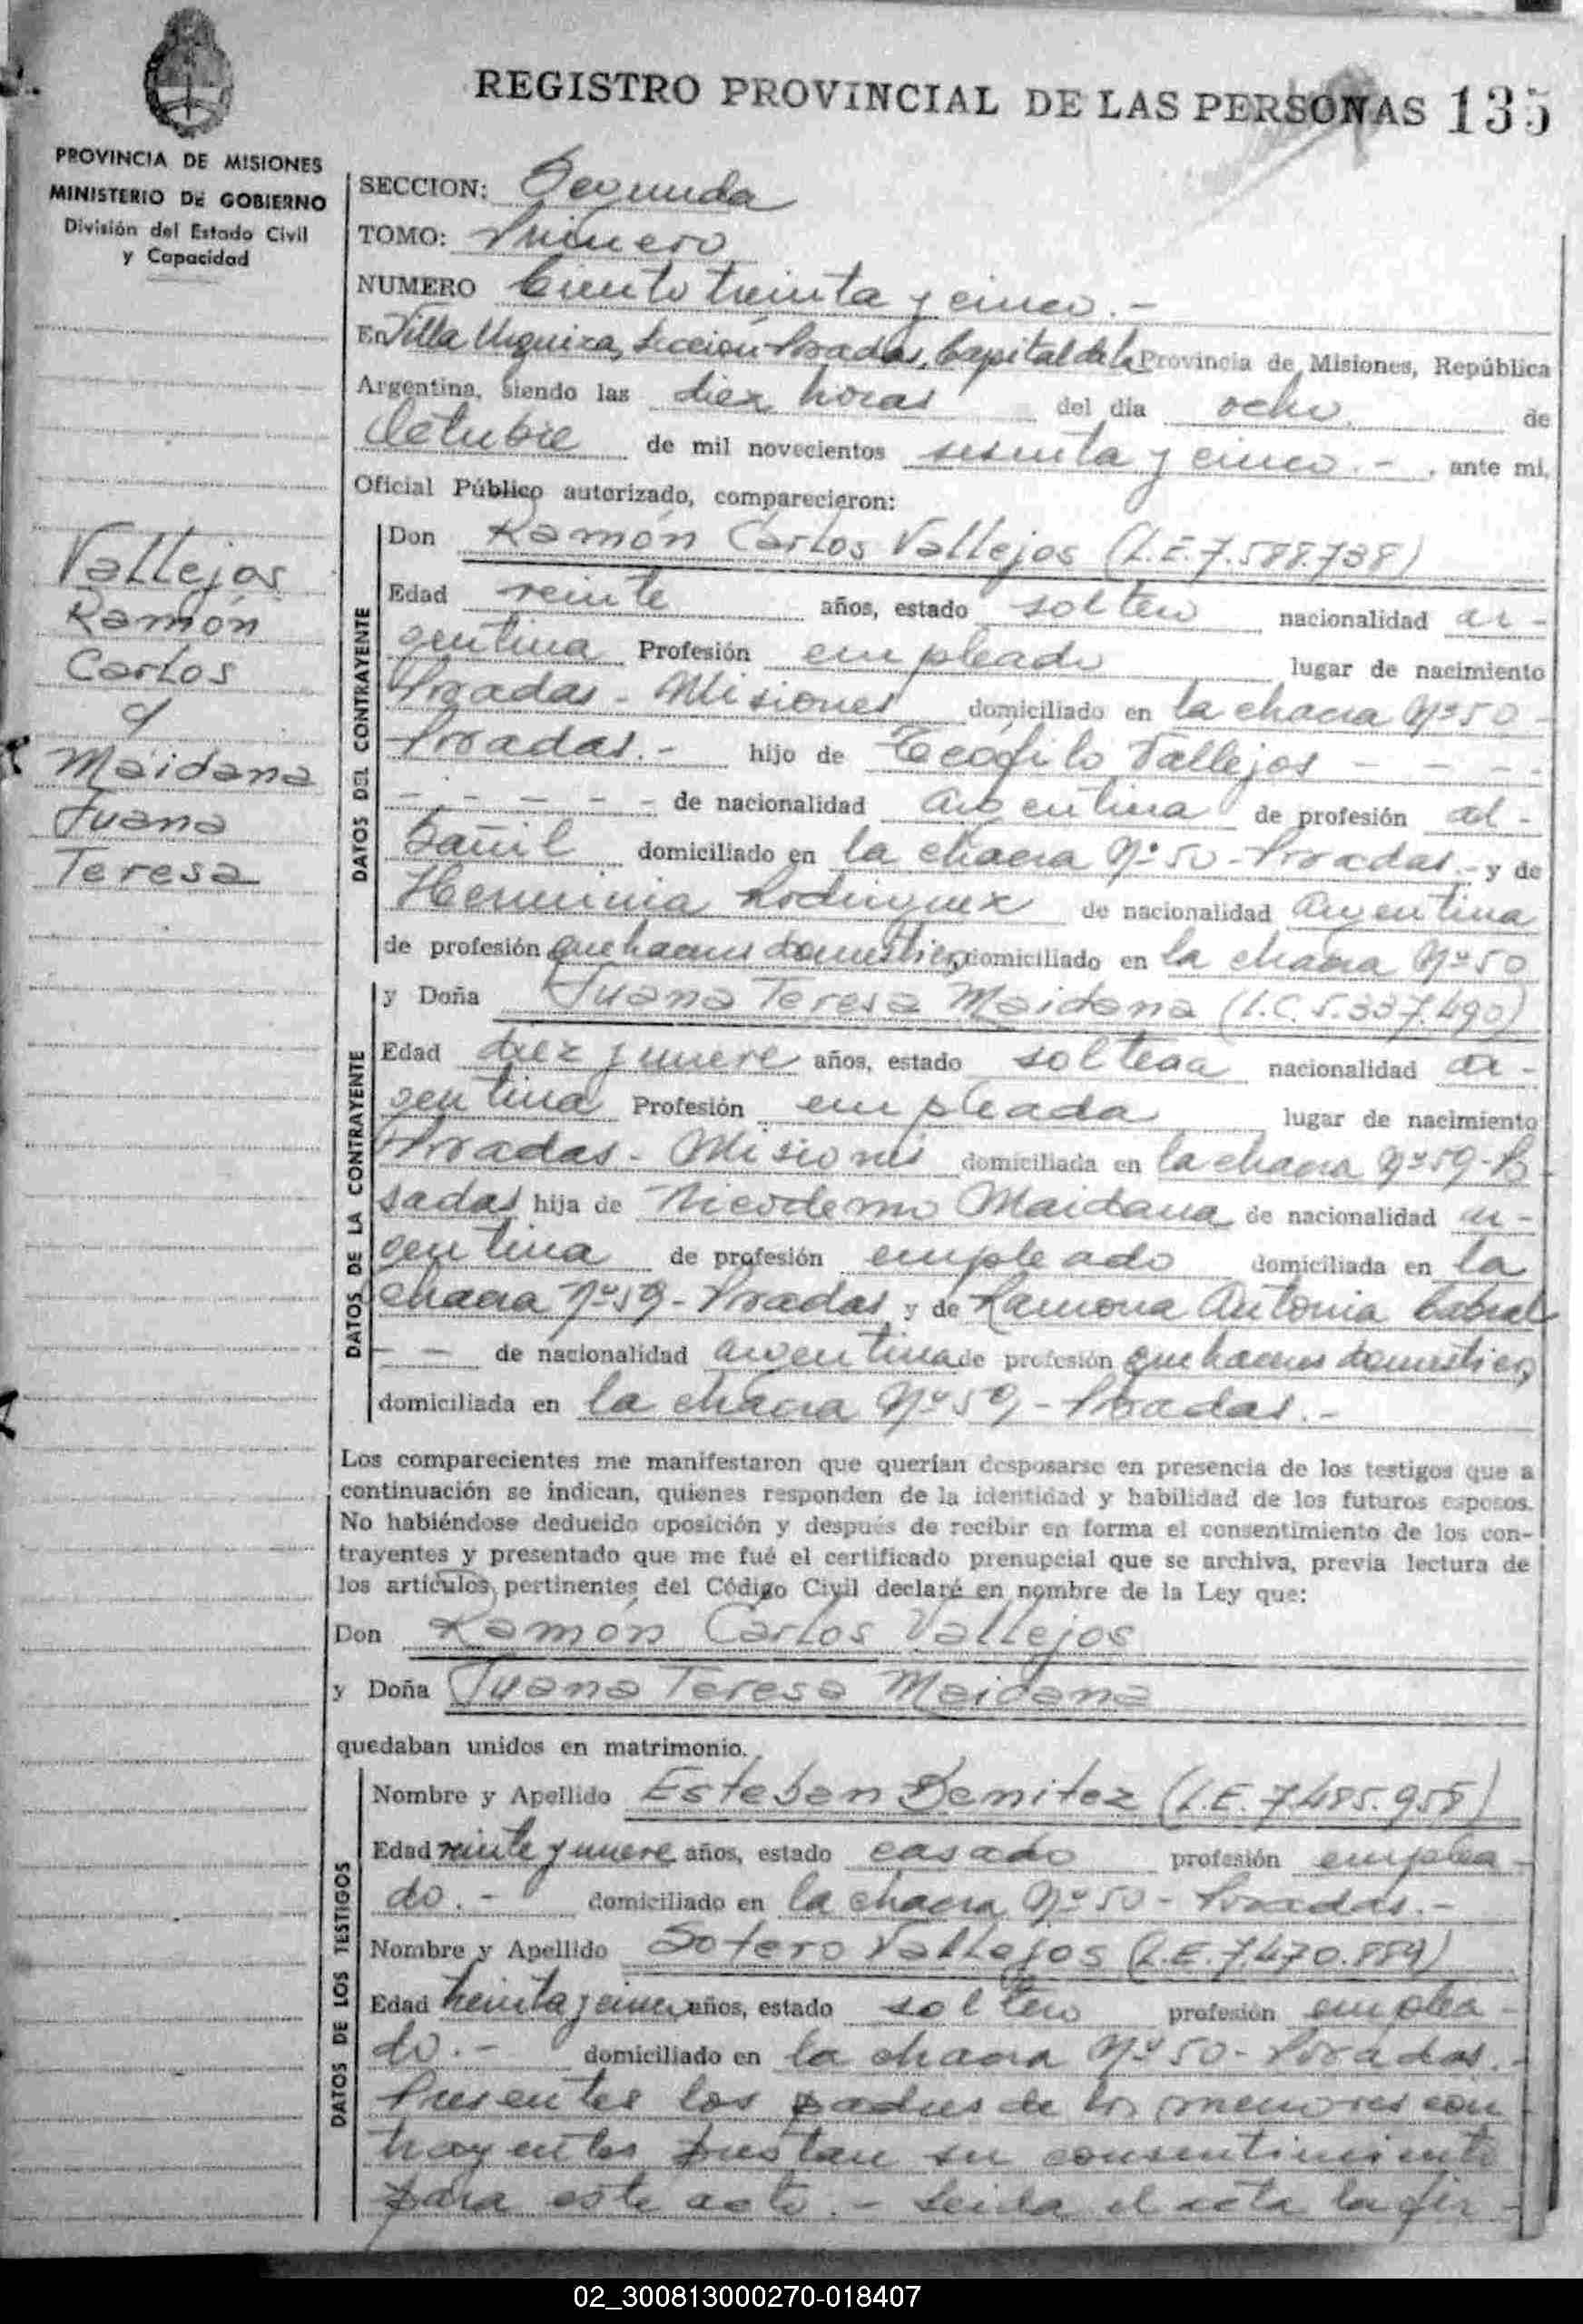 REGISTRO PROVINCIAL DE LAS PERSONAS 135
PROVINCIA DE MISIONES
MINISTERIO DE GOBIERNO
División del Estado Civil
y Capacidad
SECCION: Segunda
TOMO: Primero
NUMERO Ciento treinta y cinco.-
En Villa Urquiza, Sección Posadas, Capital de la Provincia de Misiones, República
Argentina, siendo las diez horas del día ocho de
Octubre de mil novecientos sesenta y cinco.- , ante mi,
Oficial Público autorizado, comparecieron:
Vallejos
Ramón
Carlos
y
Maidana
Juana
Teresa
DATOS DEL CONTRAYENTE
Don Ramón Carlos Vallejos (L.E.7.588.738)
Edad veinte años, estado soltero nacionalidad ar-
gentina Profesión empleado lugar de nacimiento
Posadas - Misiones domiciliado en la chacra Nº 50 -
Posadas.- hijo de Teófilo Vallejos - - - -
- - - - - de nacionalidad argentina de profesión al-
bañil domiciliado en la chacra Nº 50 - Posadas.- y de
Herminia Rodriguez de nacionalidad argentina
de profesión quehaceres domésticos domiciliado en la chacra Nº 50
DATOS DE LA CONTRAYENTE
y Doña Juana Teresa Maidana (L.C.5.337.490)
Edad diez y nueve años, estado soltera nacionalidad ar-
gentina Profesión empleada lugar de nacimiento
Posadas - Misiones domiciliada en la chacra Nº 59 - Po
sadas hija de Nicodemo Maidana de nacionalidad ar-
gentina de profesión empleado domiciliada en la
chacra Nº 59 - Posadas y de Ramona Antonia Cabral
- - de nacionalidad argentina de profesión quehaceres domésticos
domiciliada en la chacra Nº 59 - Posadas.-
Los comparecientes me manifestaron que querían desposarse en presencia de los testigos que a
continuación se indican, quienes responden de la identidad y habilidad de los futuros esposos.
No habiéndose deducido oposición y después de recibir en forma el consentimiento de los con-
trayentes y presentado que me fué el certificado prenupcial que se archiva, previa lectura de
los artículos pertinentes del Código Civil declaré en nombre de la Ley que:
Don Ramón Carlos Vallejos
y Doña Juana Teresa Maidana
quedaban unidos en matrimonio.
DATOS DE LOS TESTIGOS
Nombre y Apellido Esteban Benitez (L.E. 7.485.958)
Edad veinte y nueve años, estado casado profesión emplea-
do.- domiciliado en la chacra Nº 50 - Posadas.-
Nombre y Apellido Sotero Vallejos (L.E.7.470.889)
Edad treinta y cinco años, estado soltero profesión emplea-
do.- domiciliado en la chacra Nº 50 - Posadas.-
Presentes los padres de los menores con
trayentes prestan su consentimiento
para este acto.- Leida el acta la fir-
02_300813000270-018407